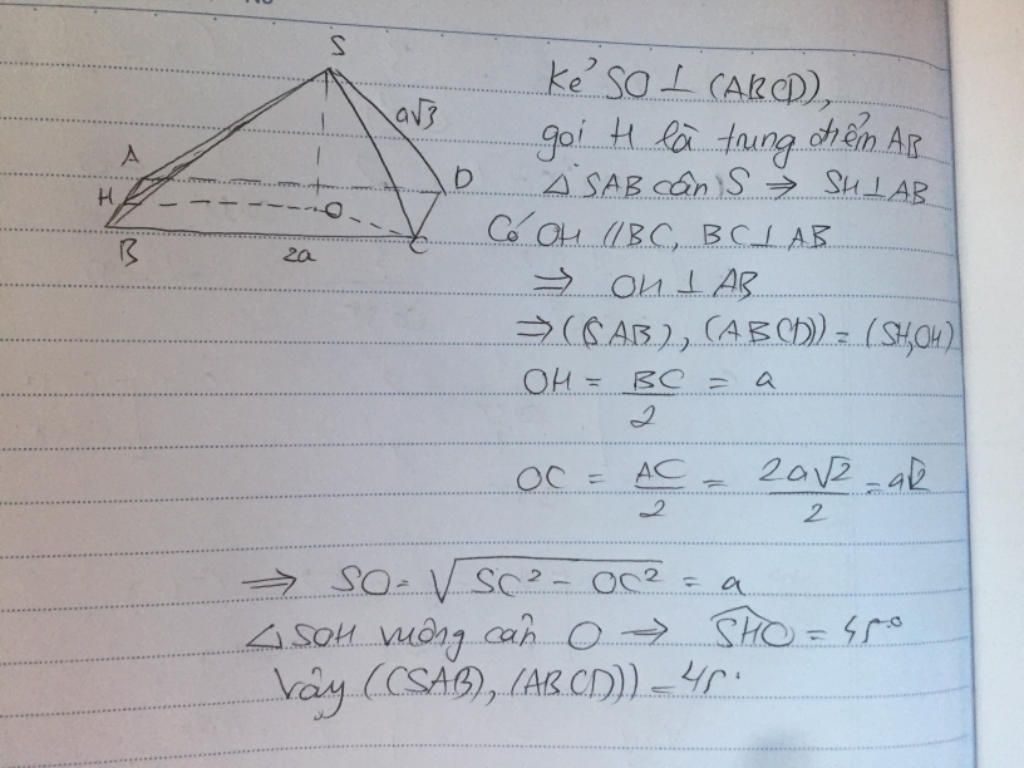 S
a√3
A
D
H
O
B
2a
C
Kẻ SO ⊥ (ABCD),
gọi H là trung điểm AB
△ SAB cân S ⇒ SH ⊥ AB
Có OH // BC, BC ⊥ AB
⇒ OH ⊥ AB
⇒ ((SAB), (ABCD)) = (SH, OH)
OH = BC/2 = a
OC = AC/2 = 2a√2/2 = a√2
⇒ SO = √(SC² - OC²) = a
△ SOH vuông cân O ⇒ SHO = 45°
Vậy ((SAB), (ABCD)) = 45°